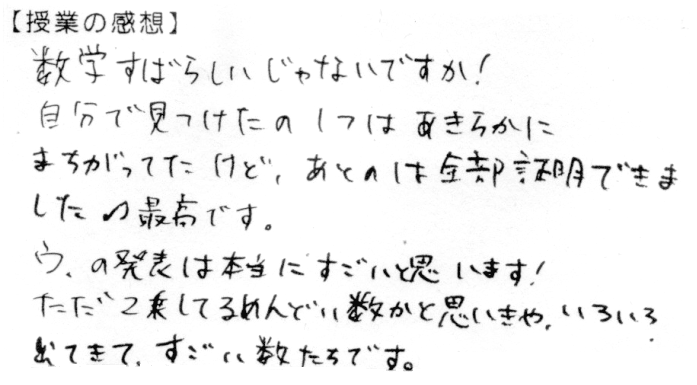 【授業の感想】
数学すばらしいじゃないですか！
自分で見つけたの1つはあきらかに
まちがってたけど、あとのは全部証明できま
した♪最高です。
ウ、の発表は本当にすごいと思います！
ただ2乗してるめんどい数かと思いきや、いろいろ
出てきて、すごい数たちです。